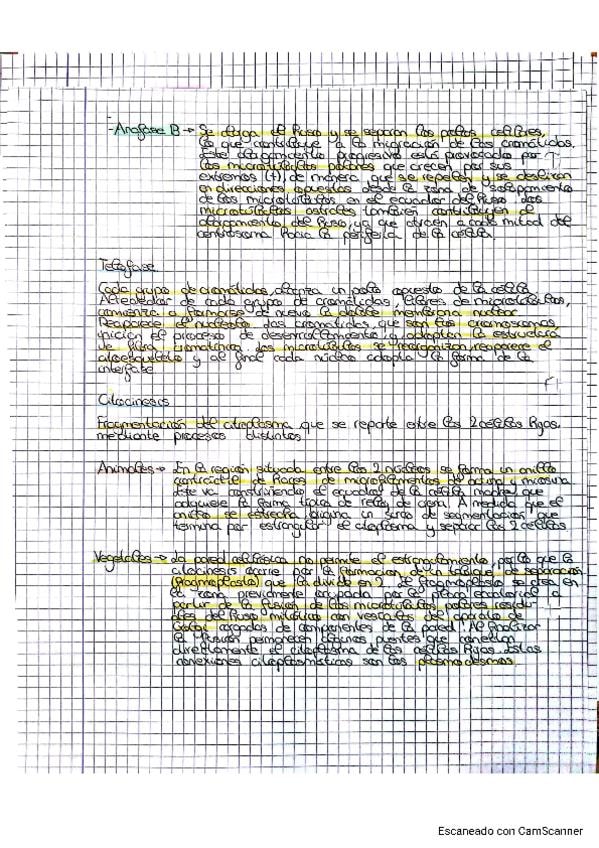 -Anafase B → Se alarga el huso y se separan los polos celulares,
lo que contribuye a la migración de las cromátidas.
Este alargamiento progresivo está provocado por
los microtúbulos polares que crecen por sus
extremos (+) de manera que se repelen y se deslizan
en direcciones opuestas desde la zona de solapamiento
de los microtúbulos en el ecuador del huso. Los
microtúbulos astrales también contribuyen al
alargamiento del huso, ya que atraen a cada mitad del
centrosoma hacia la periferia de la célula.
Telofase
Cada grupo de cromátidas alcanza un polo opuesto de la célula
Alrededor de cada grupo de cromátidas, libres de microtúbulos,
comienza a formarse de nuevo la doble membrana nuclear.
Reaparece el nucleolo. Las cromátidas, que son los cromosomas
inician el proceso de desenrollamiento y adoptan la estructura
de fibra cromatínica. Los microtúbulos se reorganizan, reaparece el
citoesqueleto y al final cada núcleo adopta la forma de la
interfase
Citocinesis
Fragmentación del citoplasma que se reparte entre las 2 células hijas,
mediante procesos distintos.
Animales → En la región situada entre los 2 núcleos se forma un anillo
contráctil de haces de microfilamentos de actina y miosina
Este va constriñendo el ecuador de la célula madre que
adquiere la forma típica de reloj de arena. A medida que el
anillo se estrecha, origina un surco de segmentación que
termina por estrangular el citoplasma y separar las 2 células
Vegetales → La pared celulósica no permite el estrangulamiento, por lo que la
citocinesis ocurre por la formación de un tabique de separación
(fragmoplasto) que la divide en 2. El fragmoplasto se crea en
la zona previamente ocupada por la placa ecuatorial a
partir de la fusión de los microtúbulos polares resid-
uales del huso mitótico con vesículas del aparato de
Golgi cargadas de componentes de la pared. Al finalizar
la fusión permanecen algunos puentes que conectan
directamente el citoplasma de las células hijas. Estas
conexiones citoplasmáticas son los plasmodesmos.
Escaneado con CamScanner